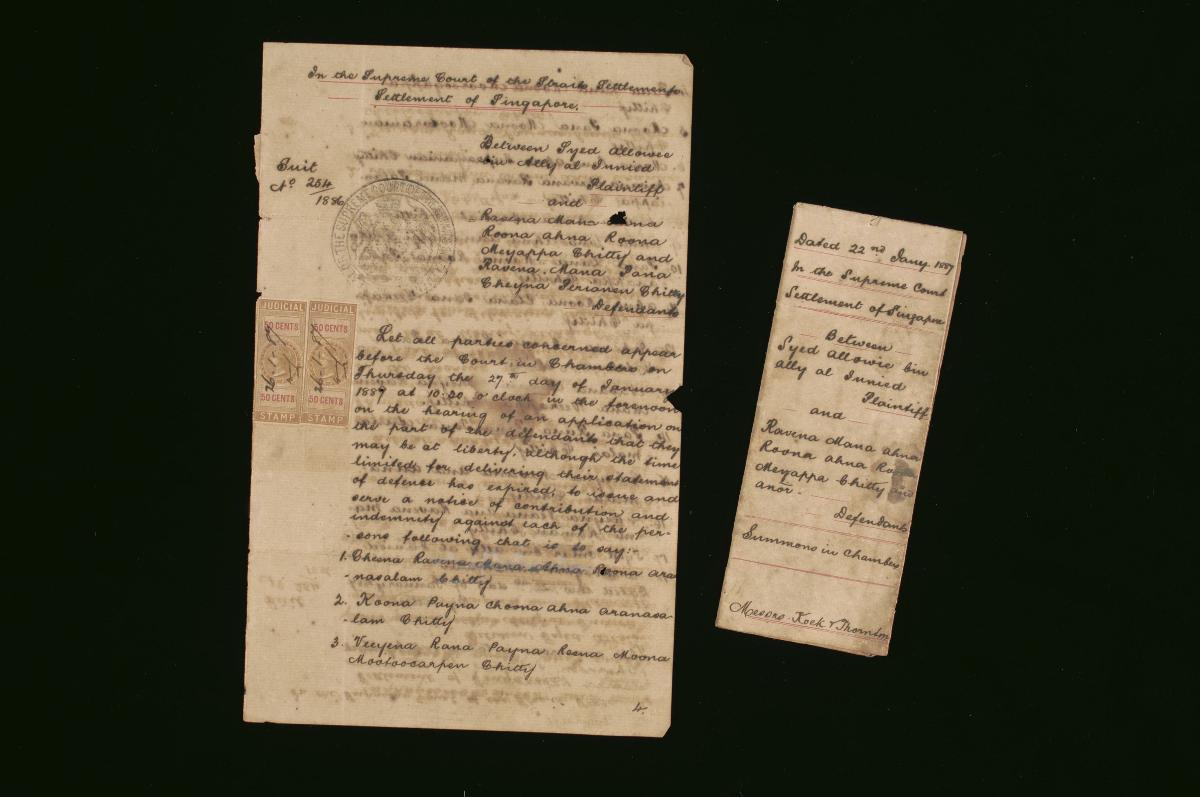 In the Supreme Court of the Straits Settlements
Settlement of Singapore.
Suit
No 254/1886
Between Syed Allowee
bin Ally al Junied
Plaintiff
and
Ravena Mana Ahna
Roona Ahna Roona
Meyappa Chitty and
Ravena Mana Pana
Cheyna Perianen Chitty
Defendants
THE SUPREME COURT OF THE
JUDICIAL
50 CENTS
50 CENTS
STAMP
JUDICIAL
50 CENTS
50 CENTS
STAMP
Let all parties concerned appear
before the Court in Chambers on
Thursday the 27th day of January
1887 at 10:30 o'clock in the forenoon
on the hearing of an application on
the part of the defendants that they
may be at liberty, although the time
limited for delivering their statement
of defence has expired, to issue and
serve a notice of contribution and
indemnity against each of the per-
-sons following that is to say:-
1. Cheena Ravena Mana Ahna Roona Aru
-nasalam Chitty
2. Koona Payna Choona Ahna Arunasa-
-lam Chitty
3. Veeyena Rana Payna Reena Moona
Mootoocarpen Chitty
4.
Dated 22nd Jany. 1887
In the Supreme Court
Settlement of Singapore
Between
Syed Allowie bin
Ally al Junied
Plaintiff
and
Ravena Mana Ahna
Roona Ahna
Meyappa Chitty and
anor.
Defendants
Summons in Chambers
Messrs. Koek & Thornton